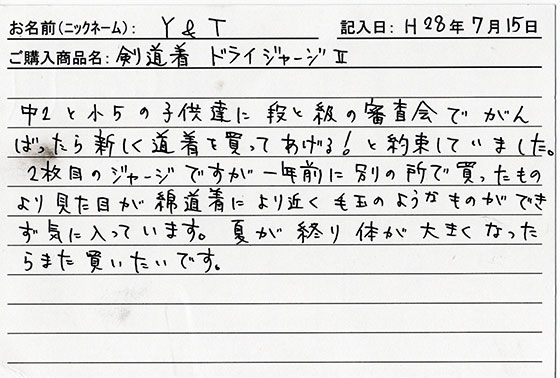 お名前(ニックネーム): Y & T 記入日: H 28年 7月 15日
ご購入商品名: 剣道着 ドライジャージⅡ
中2と小5の子供達に段と級の審査会でがん
ばったら新しく道着を買ってあげる!と約束していました。
2枚目のジャージですが一年前に別の所で買ったもの
より見た目が綿道着により近く毛玉のようなものができ
ず気に入っています。夏が終り体が大きくなった
らまた買いたいです。